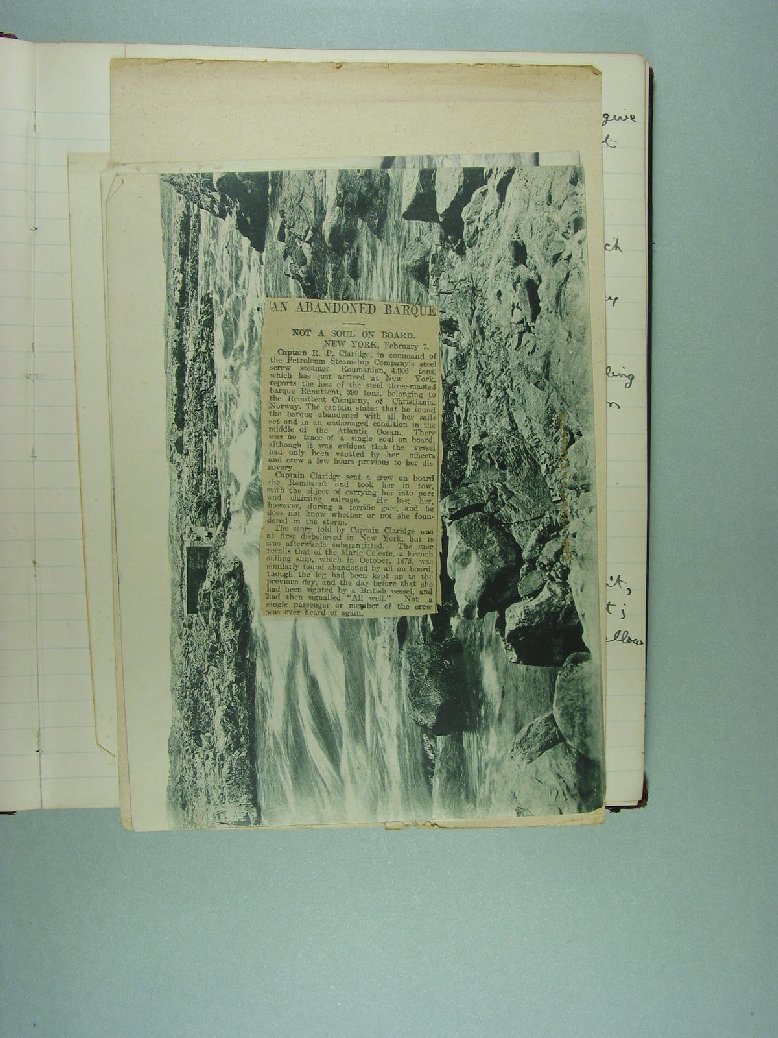 AN ABANDONED BARQUE
NOT A SOUL ON BOARD.
NEW YORK, February 7.
Captain R. P. Claridge, in command of
the Petroleum Steamship Company's steel
screw steamer Roumanian, tons,
which has just arrived at New York,
reports the loss of the steel three-masted
barque Remittent, tons, belonging to
the Remittent Company, of Christiania,
Norway. The captain states that he found
the barque abandoned with all her sails
set and in an undamaged condition in the
middle of the Atlantic Ocean. There
was no trace of a single soul on board,
although it was evident that the vessel
had only been vacated by her officers
and crew a few hours previous to her dis-
covery.
Captain Claridge sent a crew on board
the Remittent and took her in tow,
with the object of carrying her into port
and claiming salvage. He lost her,
however, during a terrific gale, and he
does not know whether or not she foun-
dered in the storm.
The story told by Captain Claridge was
at first disbelieved in New York, but is
was afterwards substantiated. The case
recalls that of the Marie Celeste, a French
sailing ship, which in October, 1879, was
similarly found abandoned by all on board,
though the log had been kept up to the
previous day, and the day before that she
had been sighted by a British vessel, and
had then signalled "All well." Not a
single passenger or member of the crew
was ever heard of again.
give